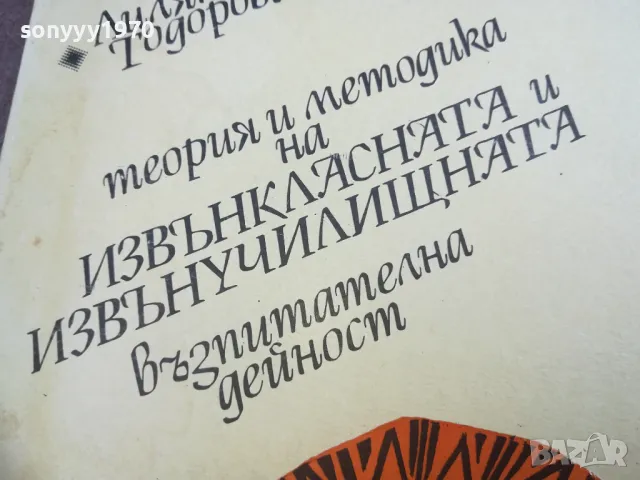 sonyyy1970
теория и методика
на
ИЗВЪНКЛАСНАТА и
ИЗВЪНУЧИЛИЩНАТА
възпитателна
дейност
BAZAR